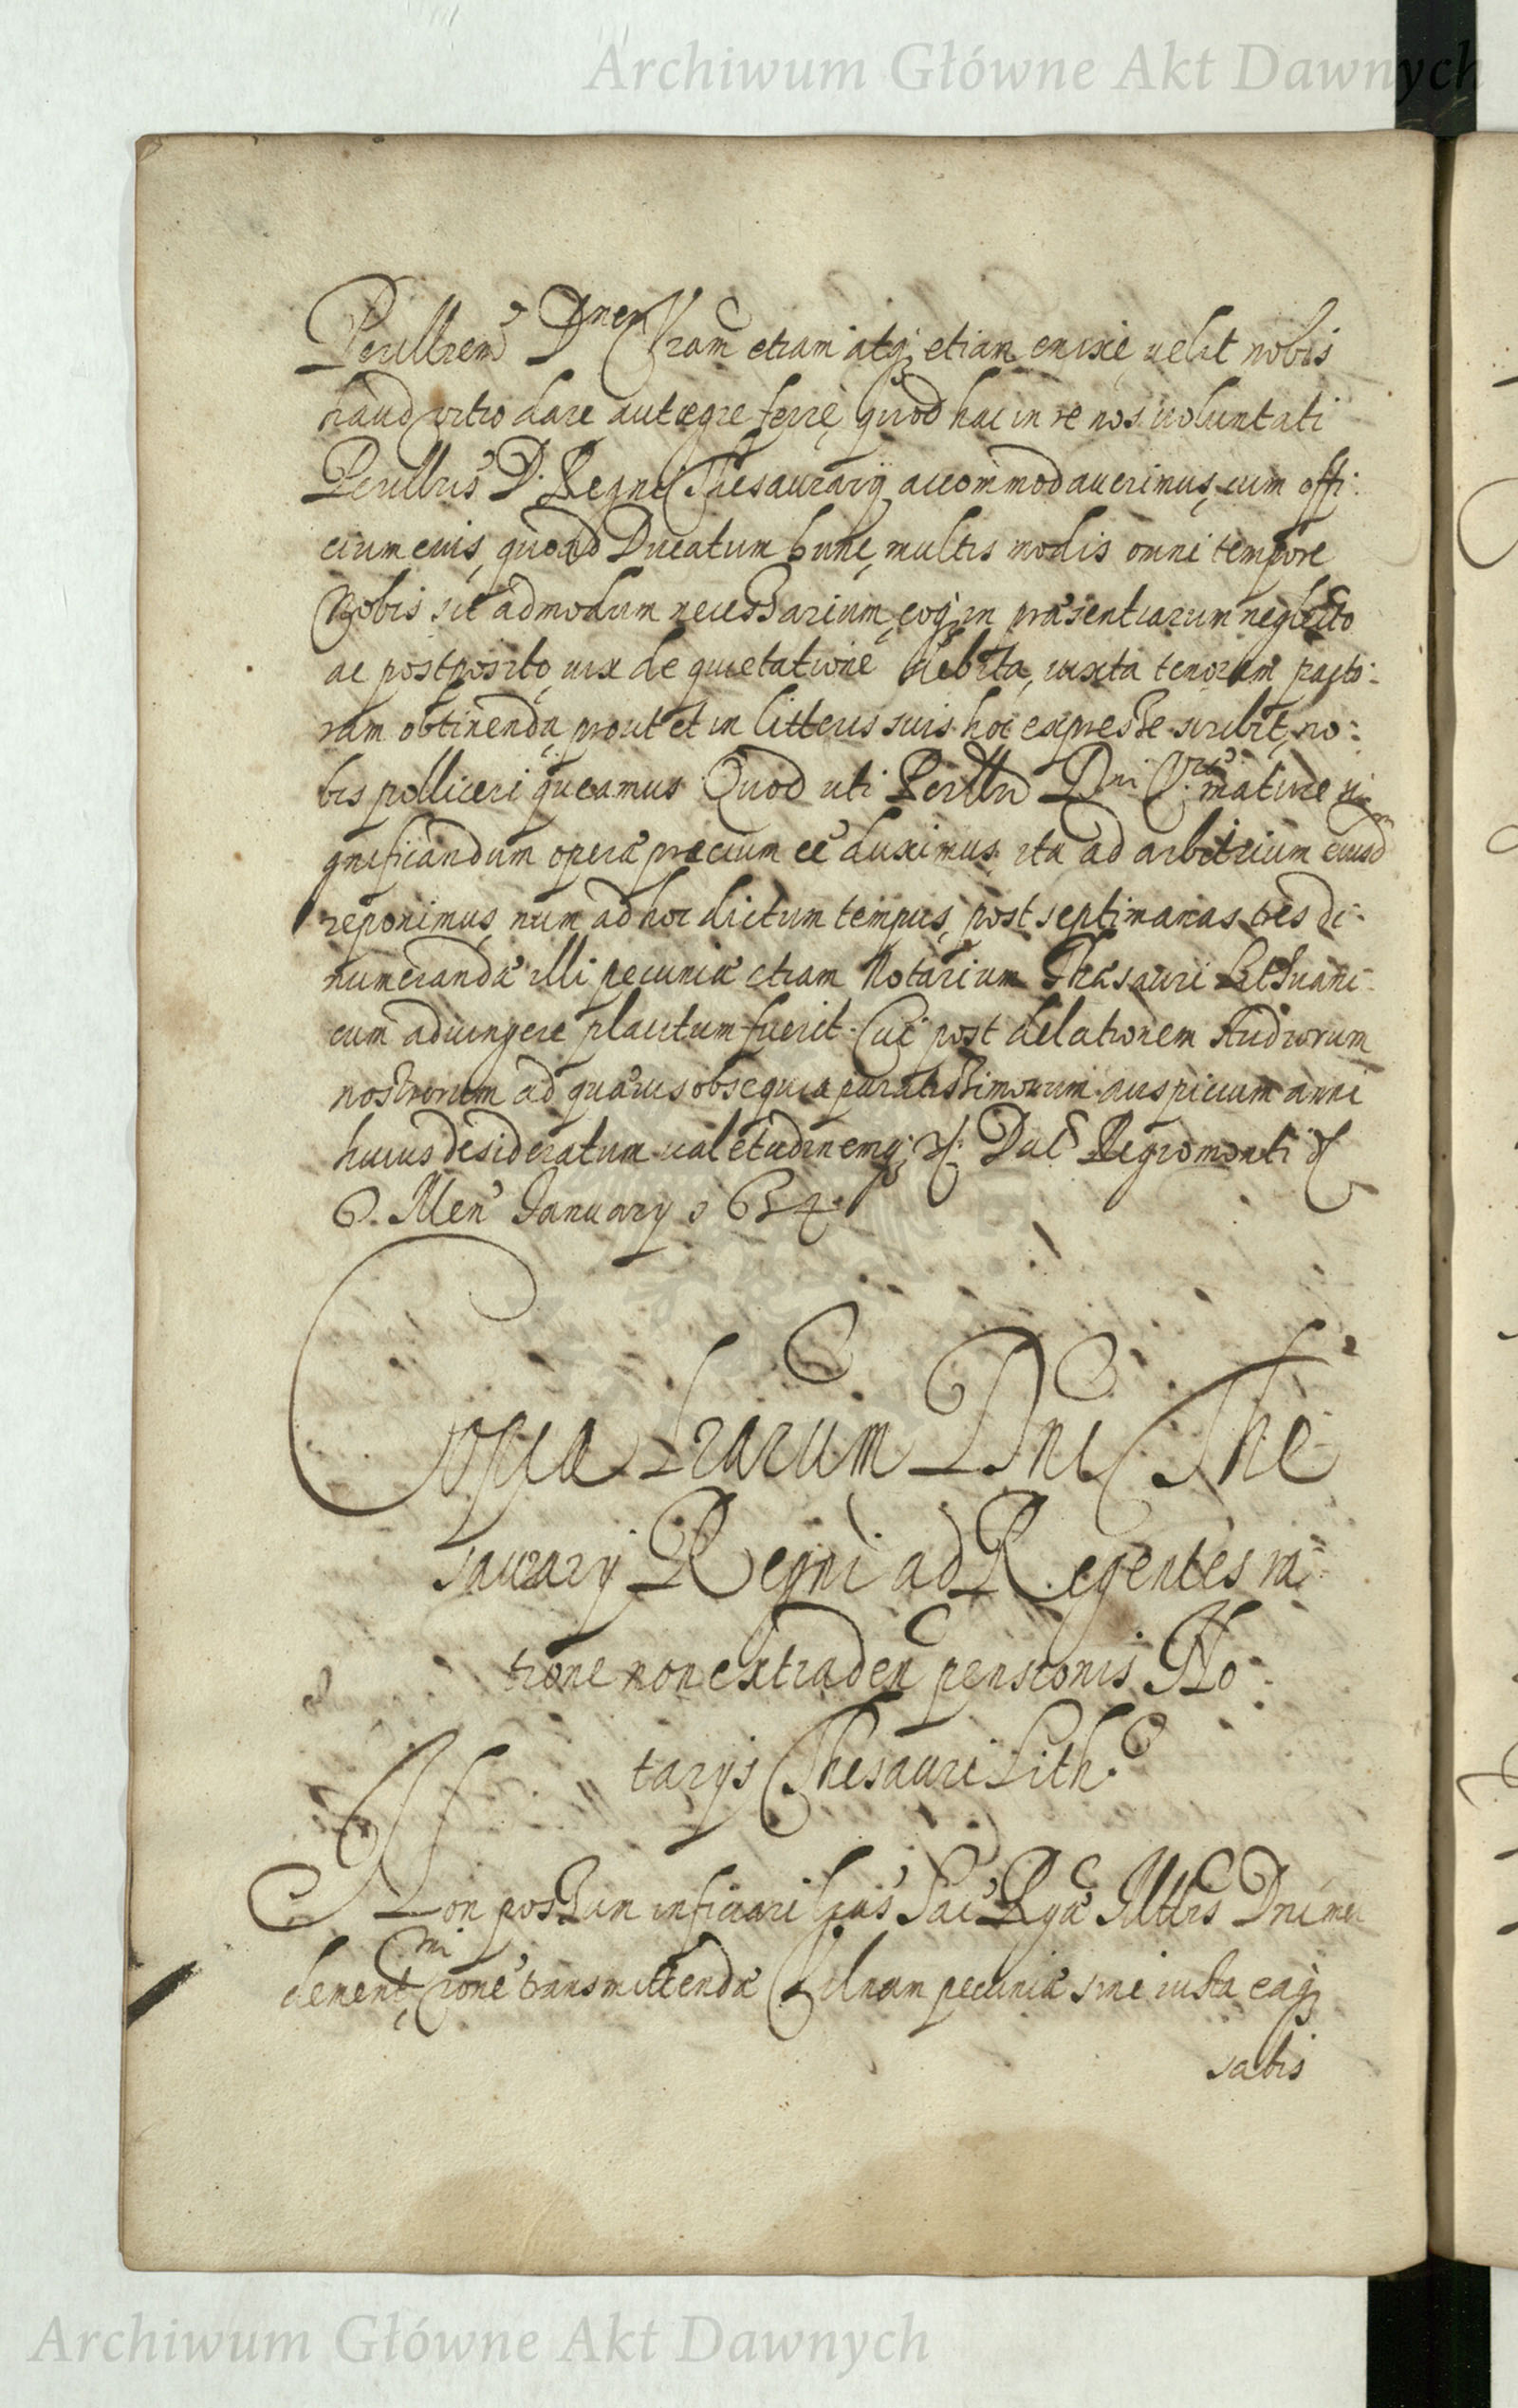 Archiwum Główne Akt Dawnych
Perillrem Dnem Vram etiam atq; etiam enixè, uelit nobis
haud vitio dare aut ægre ferre, quod hac in re nos uoluntati
Perillris D. Regni Thesaurarij accommodauerimus, cum offi:
cium eius, quoad Ducatum hunc, multis modis omni tempore
Nobis sit admodum necessarium, eoq; in præsentiarum neglecto
ac postposito, uix de quietatione debita, iuxta tenorem pacto:
rum obtinenda, prout et in litteris suis hoc expresse scribit, no:
bis polliceri queamus. Quod uti Perillri Dni Vræ mature si
gnificandum operæ precium eê duximus, ita ad arbitrium eiusd
reponimus, num ad hoc dictum tempus, post septimanas tres di:
numerandæ illi pecuniæ etiam Notarium Thesauri Lithuani:
cum adiungere placitum fuerit. Cui post delationem studiorum
nostrorum ad quæuis obsequia paratissimorum auspicium anni
huius desideratum ualetudinemq; Dat Regiomonti
6. Men January 1654.
Copia Lrarum Dni The
saurarij Regni ad Regentes ra:
tione non extraden pensionis No:
tarijs Thesauri Lith.
Non possum inficiari Eius Sac Regæ Mttis Dni mei
clement.mi rone transmittendæ Vilnam pecuniæ sine iusta eaq;
satis
Archiwum Główne Akt Dawnych